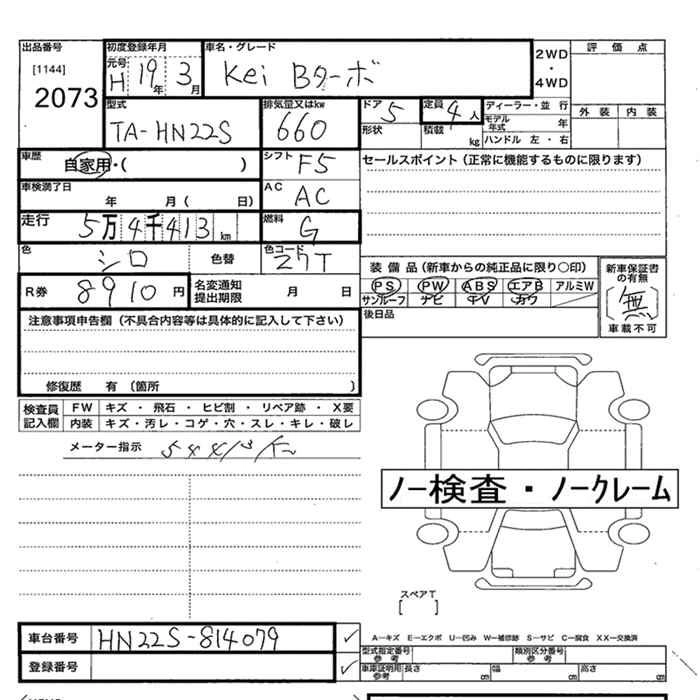 出品番号 初度登録年月 車名・グレード 2WD・4WD 評価点
[1144] 元号 H 19年 3月 Kei Bターボ
2073 外装 内装
型式 排気量又はkw ドア 5 定員 4人 ディーラー・並行
TA-HN22S 660 形状 積載 kg モデル年式 年
ハンドル 左・右
車歴 自家用・( ) シフト F5 セールスポイント(正常に機能するものに限ります)
車検満了日 年 月( 日) AC AC
走行 5万4千413km 燃料 G
色 シロ 色替 色コード Z7T
装備品(新車からの純正品に限り〇印) 新車保証書の有無
R券 8910円 名変通知提出期限 月 日 PS PW ABS エアB アルミW (無)
サンルーフ ナビ TV カワ 車載不可
注意事項申告欄(不具合内容等は具体的に記入して下さい) 後日品
修復歴 有(箇所 )
検査員記入欄 FW キズ・飛石・ヒビ割・リペア跡・X要
内装 キズ・汚レ・コゲ・穴・スレ・キレ・破レ
メーター指示 54413K
ノー検査・ノークレーム
スペアT
[ ]
車台番号 HN22S-814079 ✓ A―キズ E―エクボ U―凹み W―補修跡 S―サビ C―腐食 XX―交換済
型式指定番号 参考 類別区分番号 参考
登録番号 ✓ 車庫証明用 参考 長さ 幅 高さ